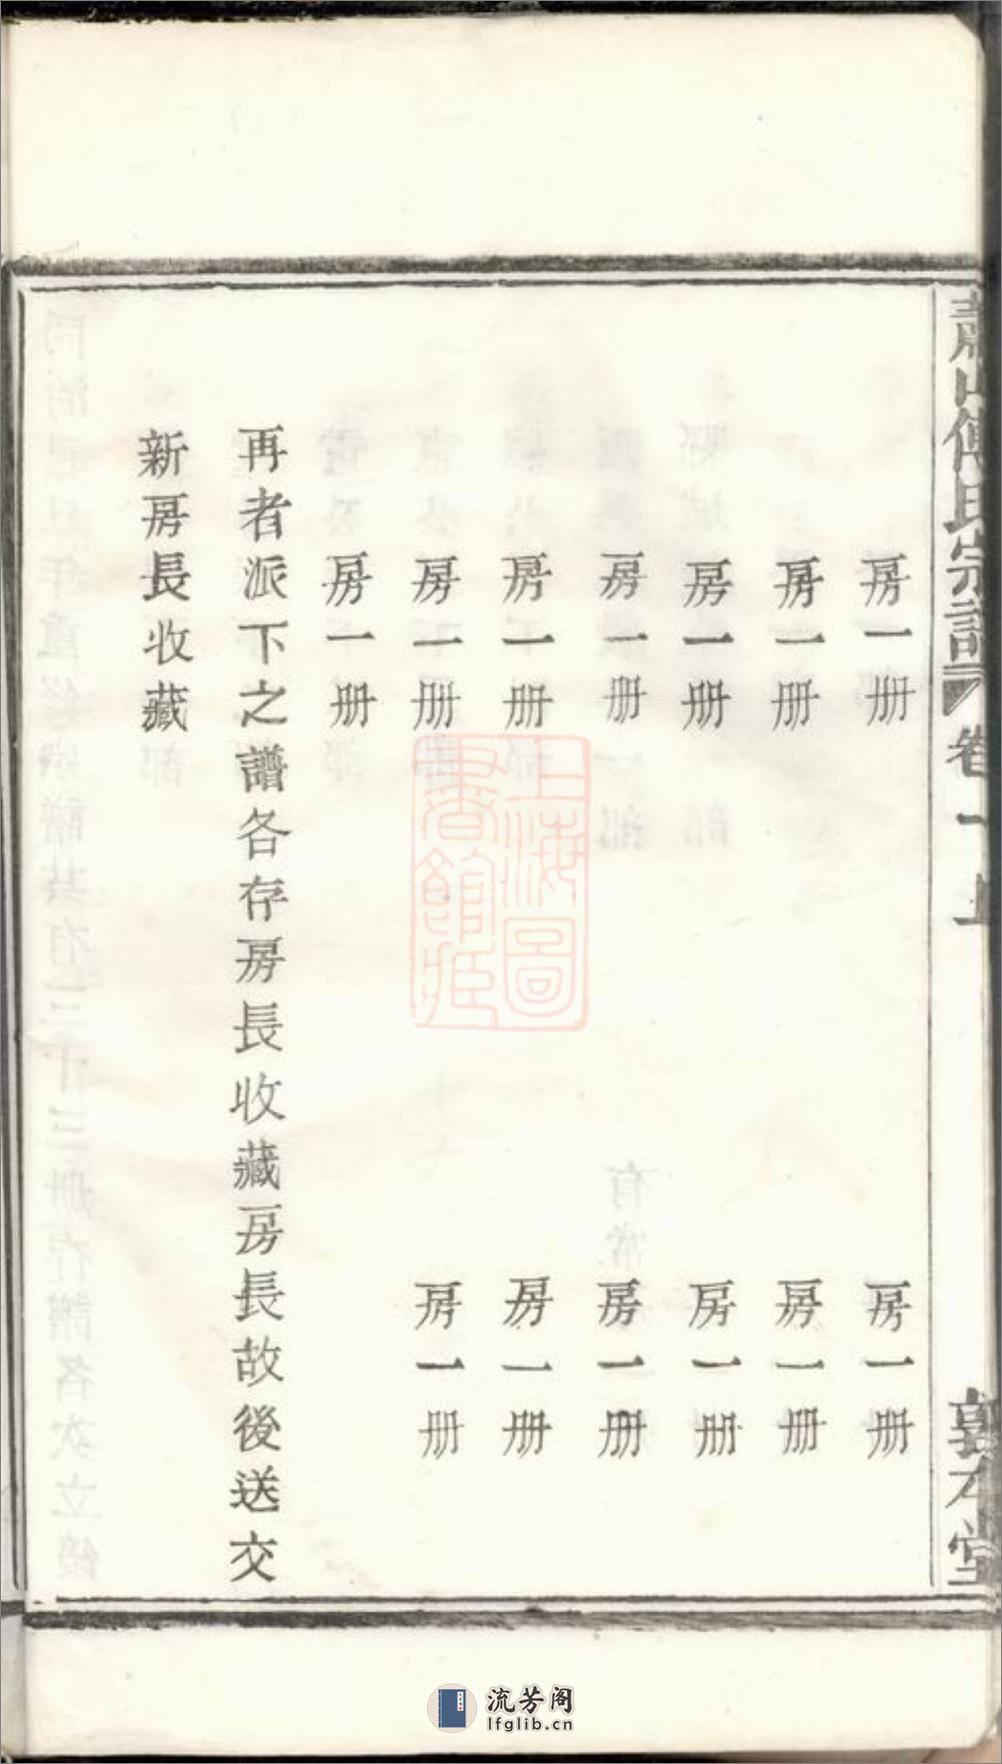 蕭山傅氏宗譜 卷一上 敦本堂
房一册 房一册
房一册 房一册
房一册 房一册
房一册 房一册
房一册 房一册
房一册 房一册
房一册
再者派下之譜各存房長收藏房長故後送交
新房長收藏
上海圖
書館藏
流芳阁
lfglib.cn